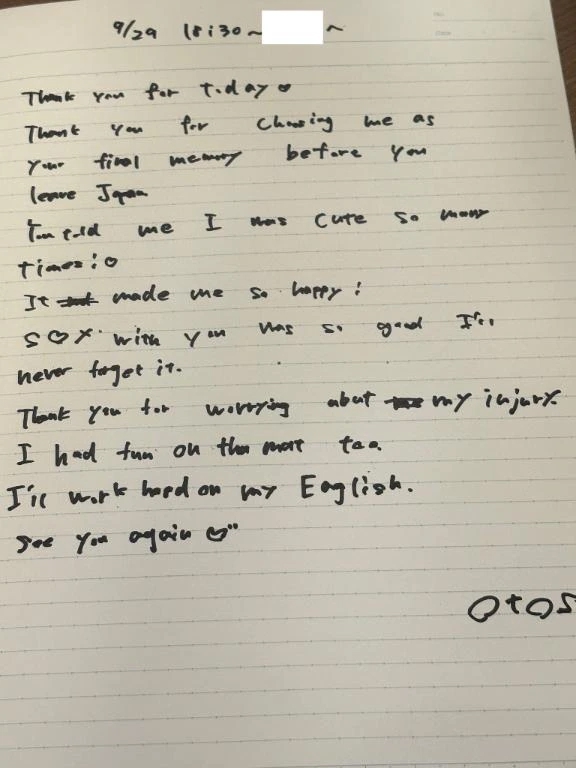 9/29 18:30~ ~
Thank you for today♡
Thank you for choosing me as
your final memory before you
leave Japan
You told me I was cute so many
times!♡
It made me so happy!
S♡X with you was so good I'll
never forget it.
Thank you for worrying about my injury.
I had fun on the mat too.
I'll work hard on my English.
See you again♡"